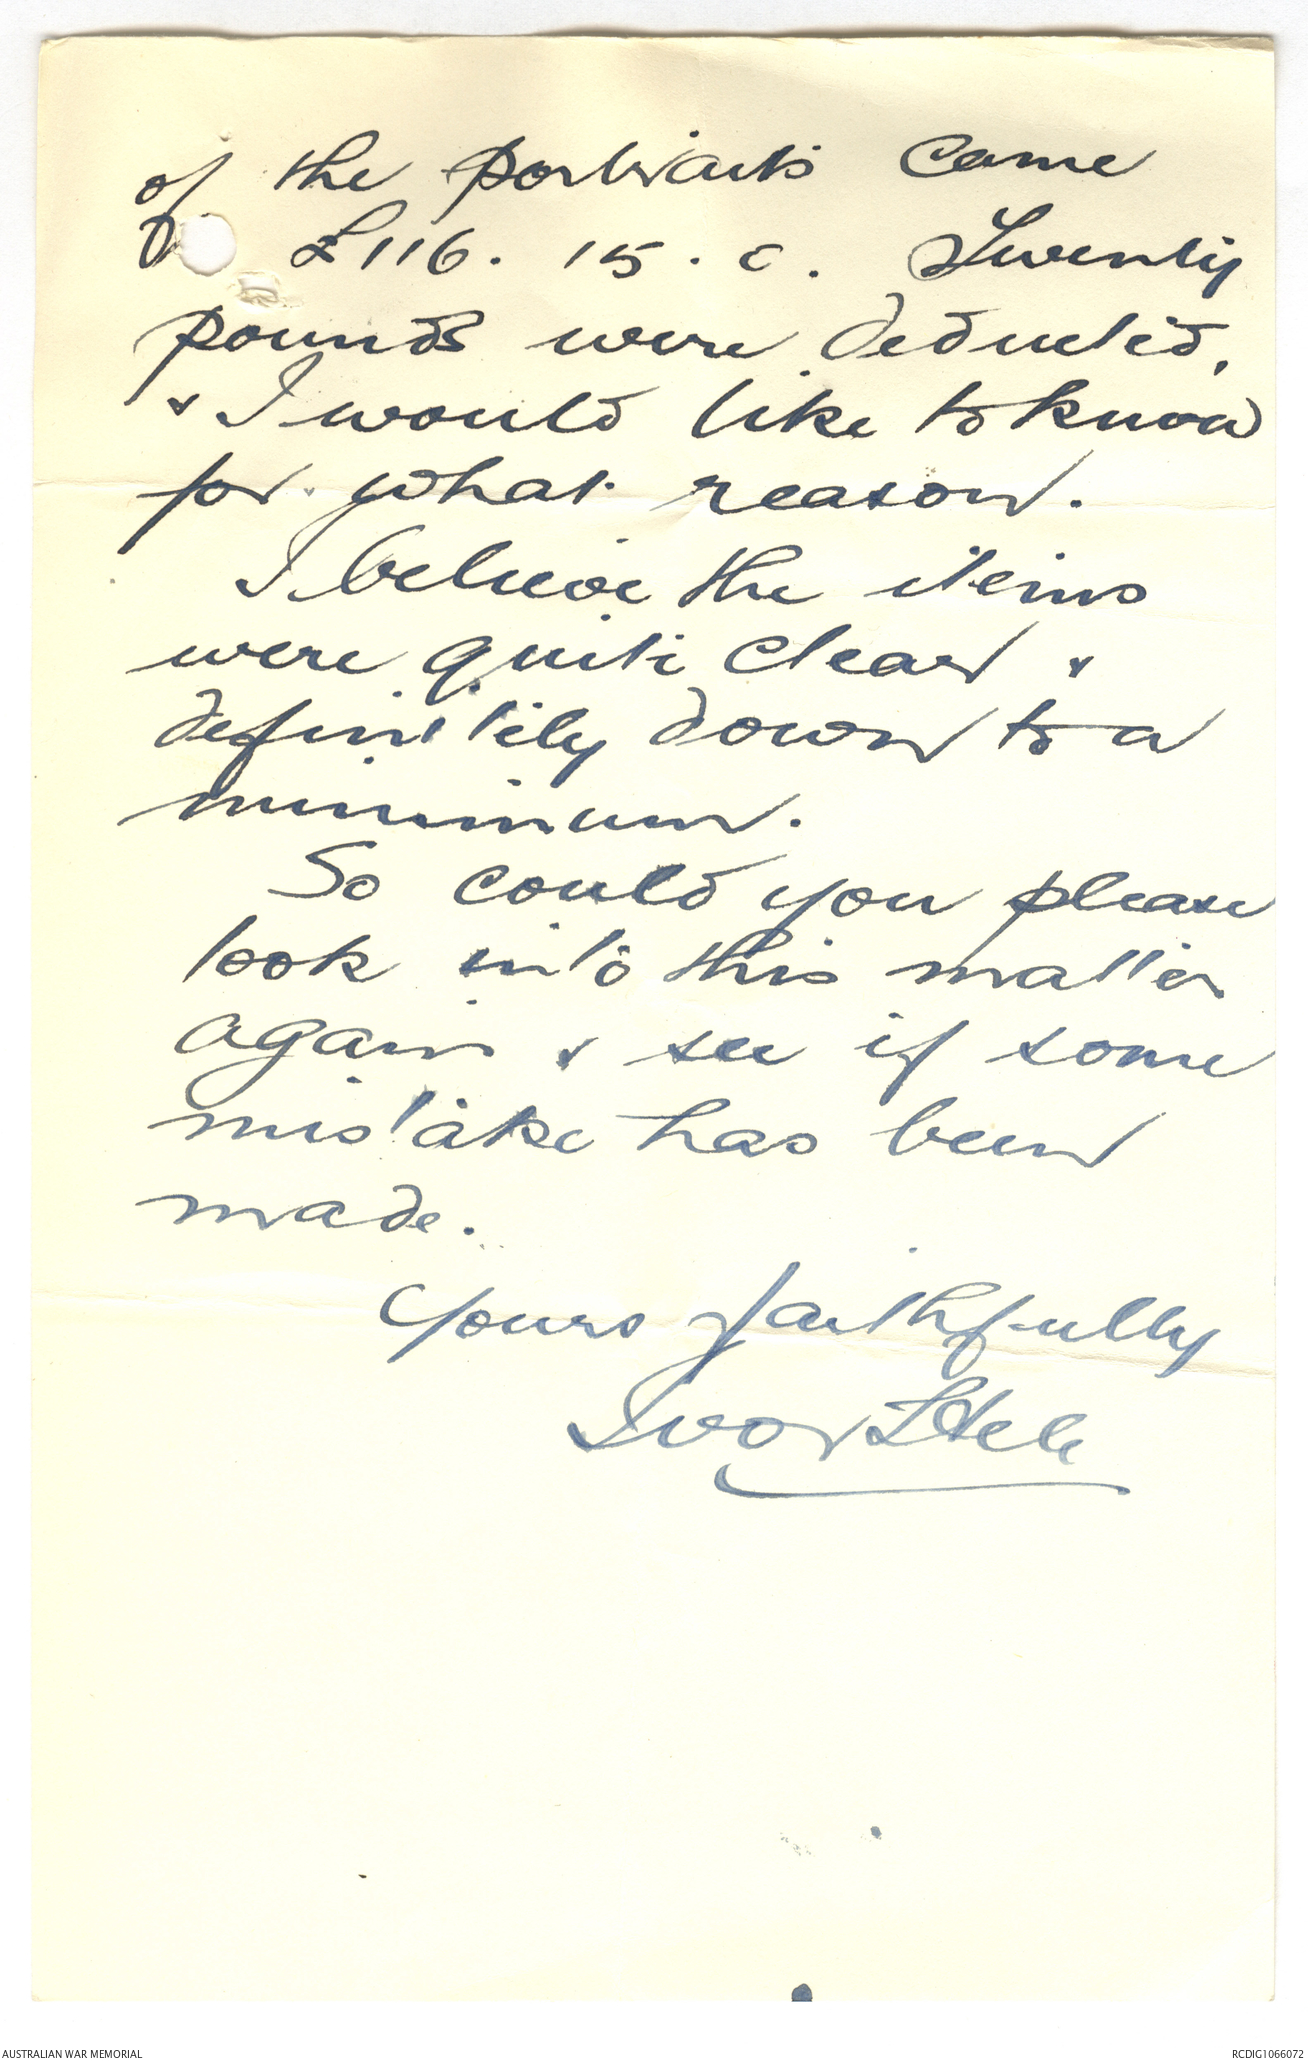 of the portraits came
£116. 15. 0. Twenty
pounds were deducted,
& I would like to know
for what reason.
I believe the items
were quite clear &
definitely down to a
minimum.
So could you please
look into this matter
again & see if some
mistake has been
made.
Yours faithfully
Ivor Hele
AUSTRALIAN WAR MEMORIAL
RCDIG1066072